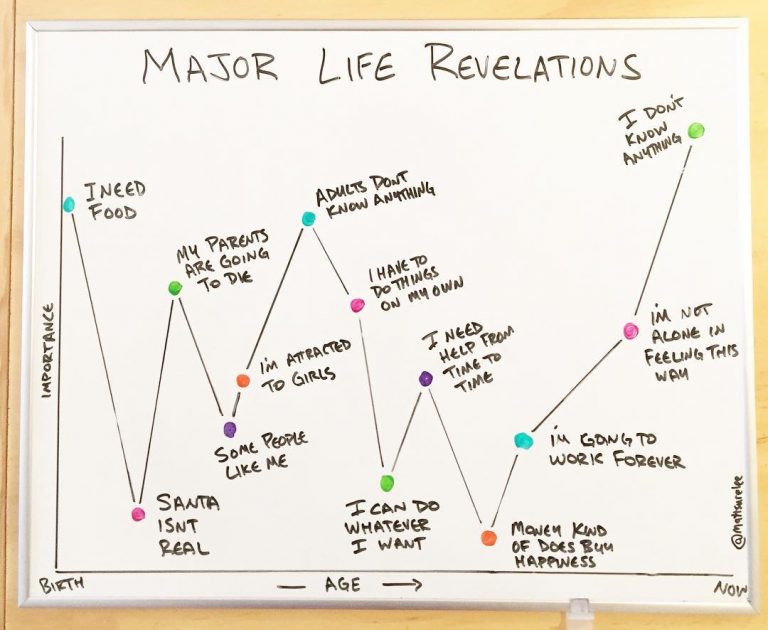 MAJOR LIFE REVELATIONS
I NEED
FOOD
MY PARENTS
ARE GOING
TO DIE
ADULTS DON'T
KNOW ANYTHING
I DON'T
KNOW
ANYTHING
I HAVE TO
DO THINGS
ON MY OWN
I'M ATTRACTED
TO GIRLS
I NEED
HELP FROM
TIME TO
TIME
I'M NOT
ALONE IN
FEELING THIS
WAY
SOME PEOPLE
LIKE ME
I'M GOING TO
WORK FOREVER
SANTA
ISNT
REAL
I CAN DO
WHATEVER
I WANT
MONEY KIND
OF DOES BUY
HAPPINESS
IMPORTANCE
BIRTH
— AGE →
NOW
@matisurelee